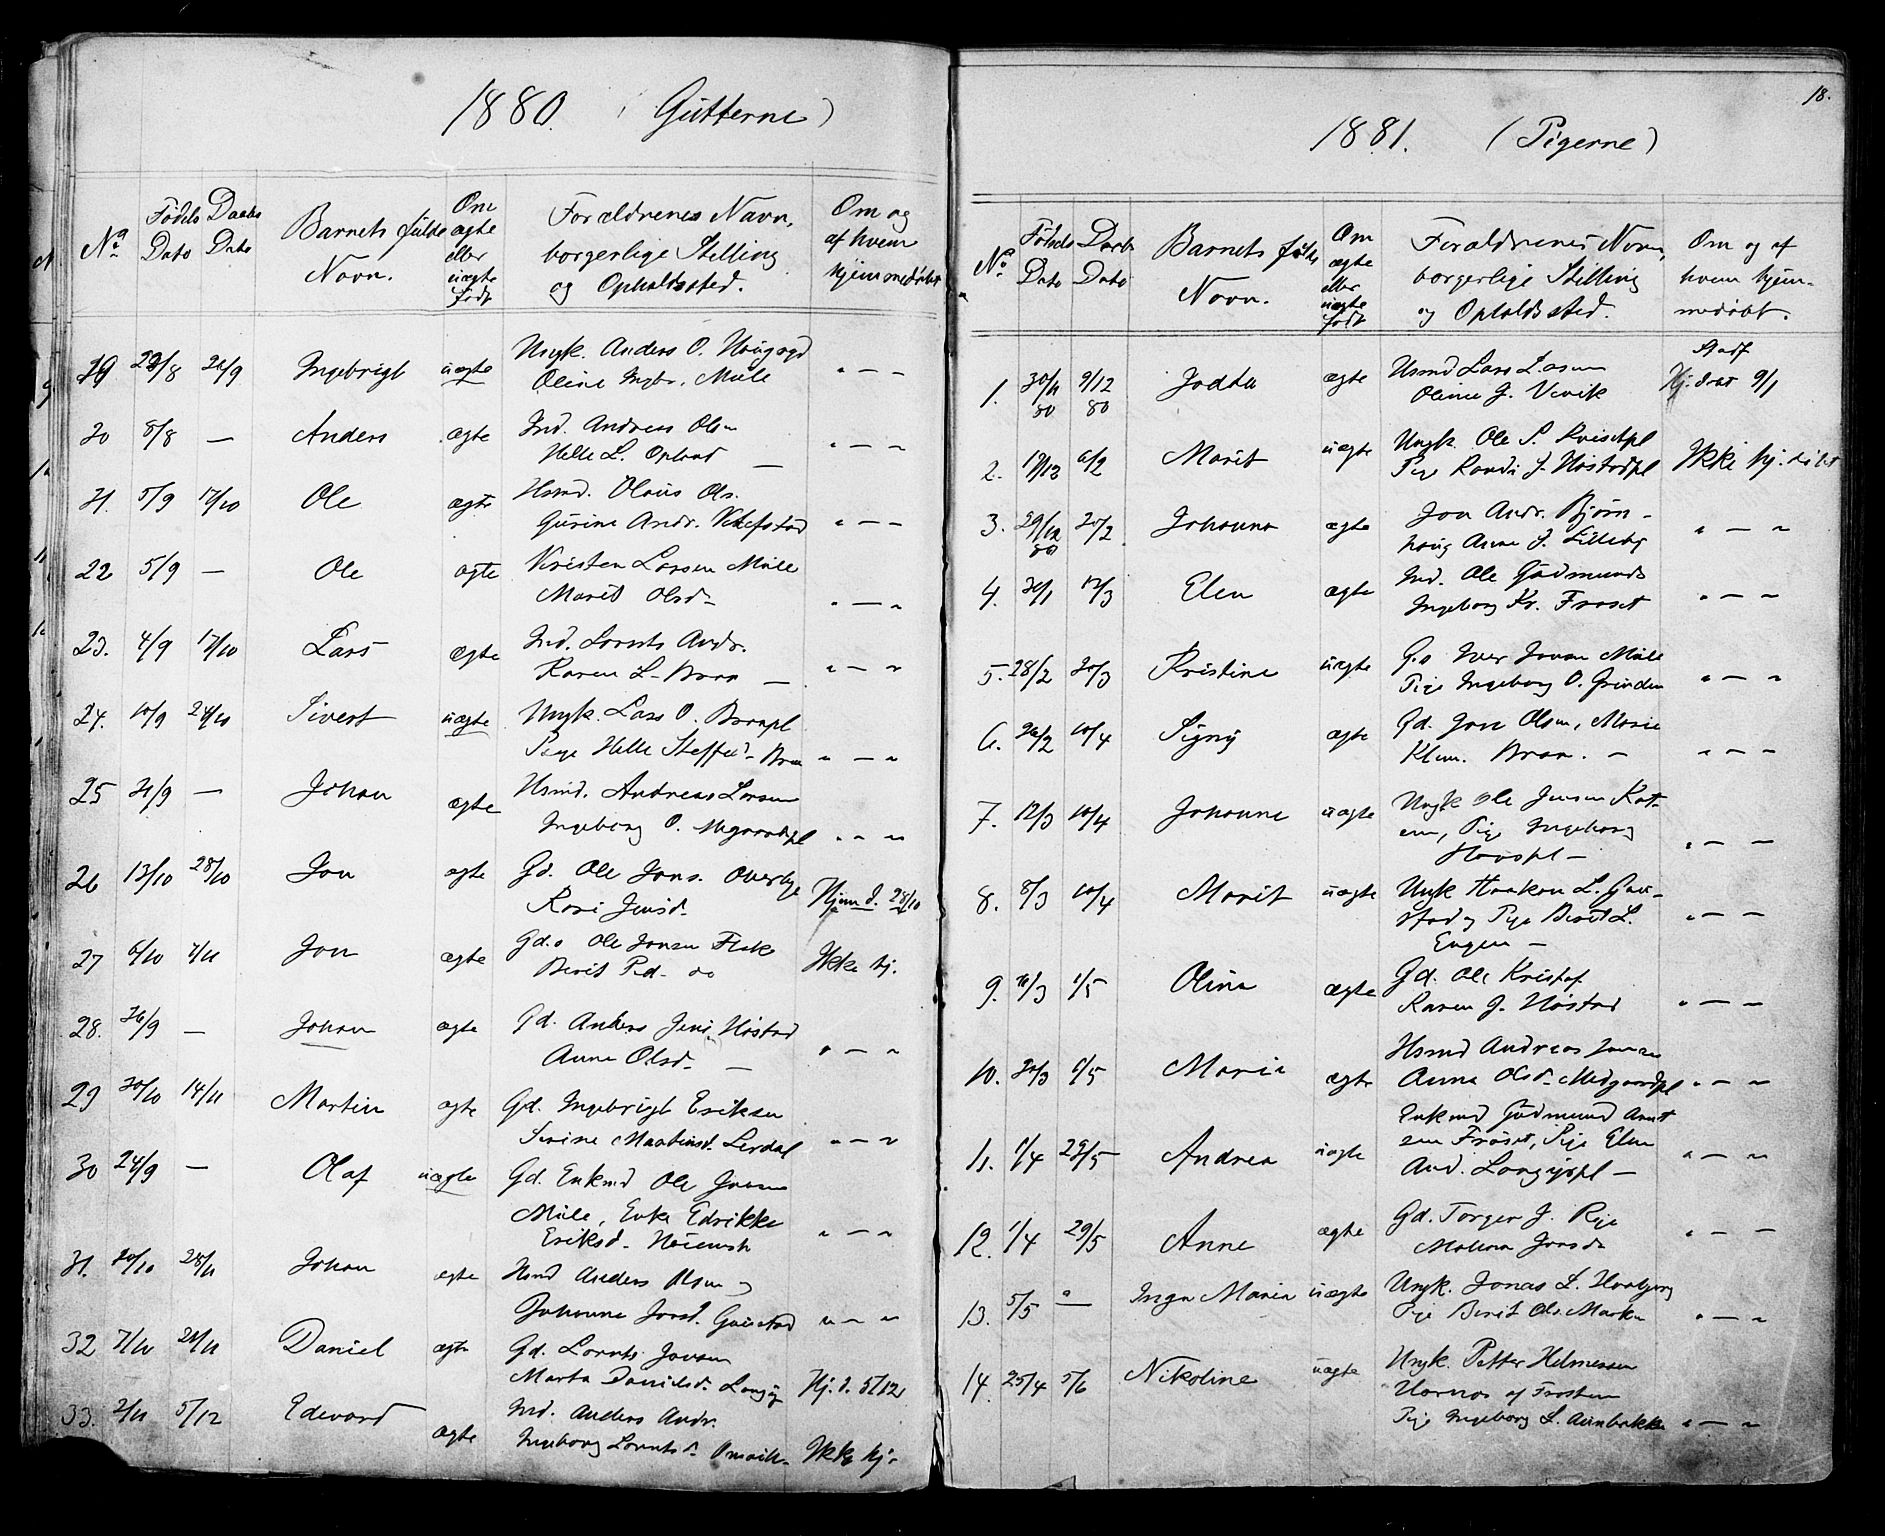 1880. (Gutterne)
No. Fødsels Dato Daabs Dato Barnets fulde Navn. Om ægte eller uægte født Forældrenes Navn, borgerlige Stilling og Opholdssted. Om og af hvem hjemmedøbt
8/9 Ingebrigt uægte Ungk. Anders O.
Oline Ingbr. Mule " — "
20 8/8 — Anders ægte Ind. Andreas Olsen
Helle L. Opland — " — "
21. 5/9 17/10 Ole ægte Hsmd. Olaus Ols.
Gurine Andr. " — "
22 5/9 — Ole ægte Kristen Larsen Mule
Marit Olsd. " — "
23. 4/9 17/10 Lars ægte Ind. Lornts Andr.
Karen L. Braa — " — "
24. 10/9 24/10 Sivert uægte Ungk. Lars O. Braapl
Pige Helle Steffensd. Braa " — "
25 21/9 — Johan ægte Hsmd. Andreas Larsen
Ingeborg O. " — "
26 13/10 28/10 Jon ægte Gd. Ole Jons. Overbye
Jensd. Hjemd. 28/10
27 6/10 7/11 Jon ægte Gd. Ole Jonsen Fisk
Berit Ped. Ikke hj.
28. 26/9 — Johan ægte Gd. Anders Jens. Høstad
Anne Olsd. — " — "
29 20/10 14/11 Martin ægte Gd. Ingebrigt Eriksen
Serine Martinsd. Lerdal " — "
30 24/9 — Olaf uægte Gd. Enkmd Ole Jonsen
Mule, Enke Edrikke
Eriksd. " — "
31. 20/10 28/11 Johan ægte Hsmd Anders Olsen
Johanne Jonsd. Gaustad " — "
32 7/10 21/11 Daniel ægte Gd. Lornts Jonsen
Marta Danielsd. Hj. d. 5/12
33. 2/11 5/12 Edevard ægte Ind. Anders Andr.
Ingeborg Lorntsd. Ikke hj.
18.
1881. (Pigerne)
No. Fødsels Dato Daabs Dato Barnets fulde Navn. Om ægte eller uægte født Forældrenes Navn, borgerlige Stilling og Opholdssted. Om og af hvem hjemmedøbt.
1. 30/11 80 9/12 80 ægte Husmd Lars Larsen Stadf
Oline J. Vevik 9/1
2. 6/2 Marit uægte Ungk. Ole S.
Pige Randi J. Høstadpl Ikke hj. døbt
3. 29/12 80 20/2 Johanna ægte Jon Andr. Bjørn-
haug Anne J. Lilleby " — "
4. 20/1 13/3 Elen ægte Ind. Ole Gudmunds
Ingeborg Kr. Frøset " — "
5. 28/2 20/3 Kristine uægte G.s Iver Jonsen Mule
Pige Ingeborg O. Grinden " — "
6. 26/2 10/4 Signy ægte Gd. Jon Olsen, Marie
Klem. Braa. — " — "
7. 12/3 10/4 Johanne uægte Ungk Ole Jensen Kat-
em, Pige Ingeborg
Hovspl — " — "
8. 8/3 10/4 Marit uægte Ungk Haakon L. Gau-
stad, Pige Berit L.
Engen — " — "
9. 11/3 1/5 Olina ægte Gd. Ole Kristof
Karen J. Høstad " — "
10. 20/3 1/5 Maria ægte Hsmd Andreas Jonsen
Anna Olsd. Midgaardpl " — "
11. 1/4 29/5 Andrea uægte Enkmd Gudmund Arnt
sen Frøset, Pige Elen
And. Langøypl — " — "
12. 1/4 29/5 Anne ægte Gd. Torger J. Rye
Malena Jonsd. " — "
13. 5/5 — Inga Maria uægte Ungk. Jonas L.
Pige Berit Ols. " — "
14. 25/4 5/6 Nikoline uægte Ungk. Petter Helmersen
af Frosten
Pige Ingeborg L. " — "